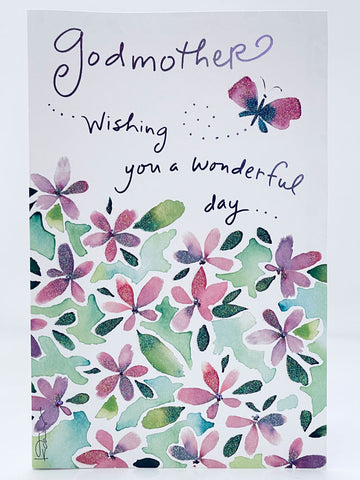 godmother
...Wishing
you a wonderful
day...